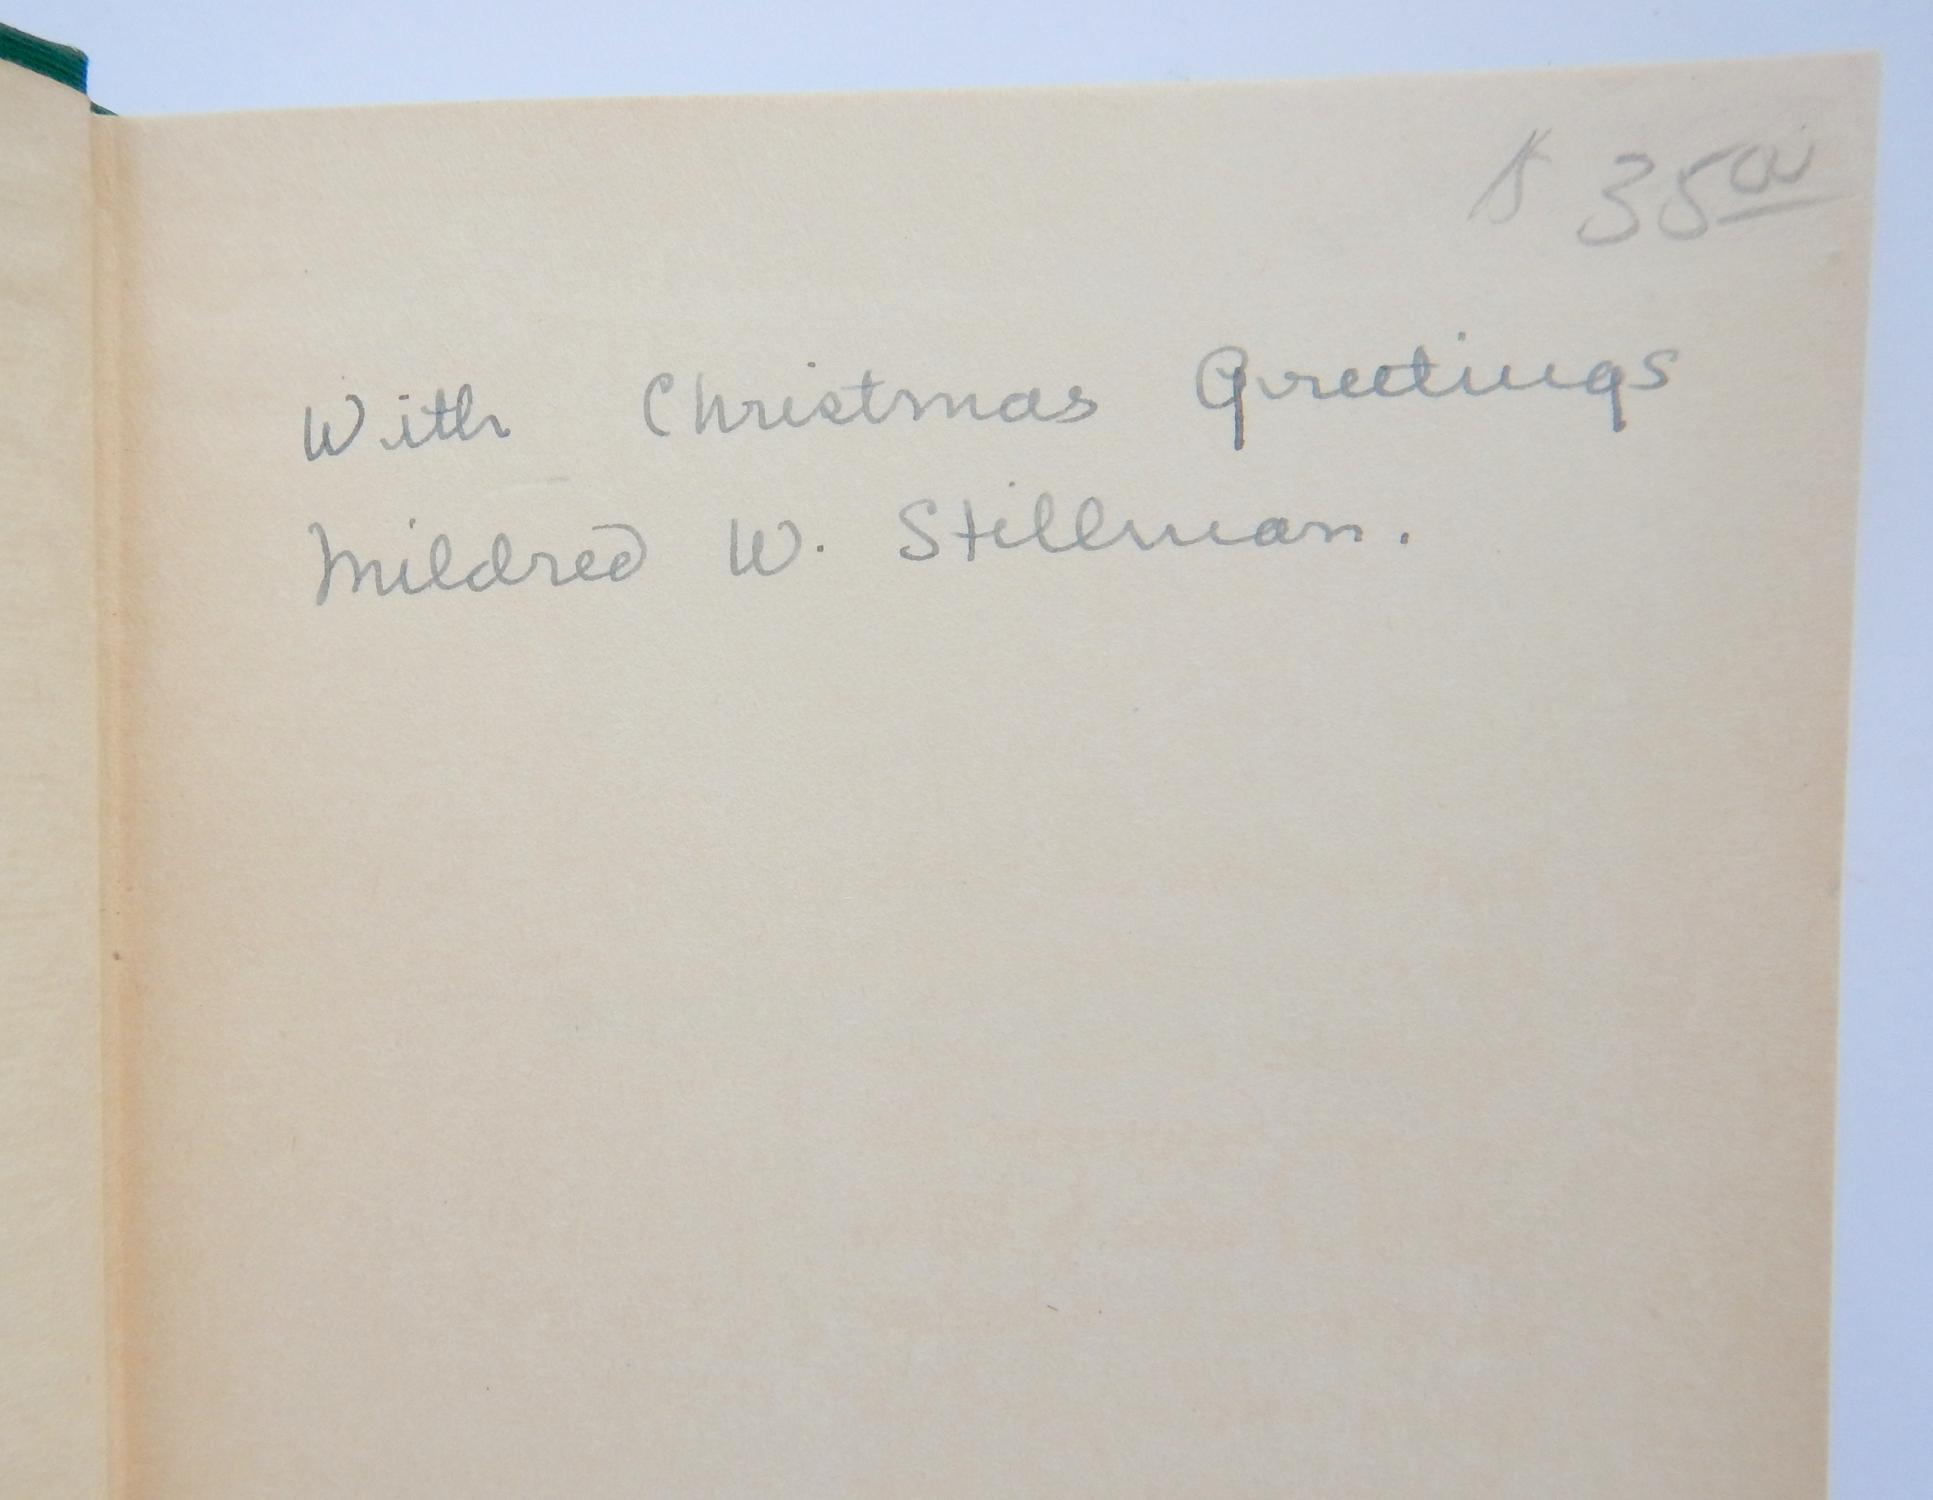 $ 35 00
With Christmas Greetings
Mildred W. Stillman.